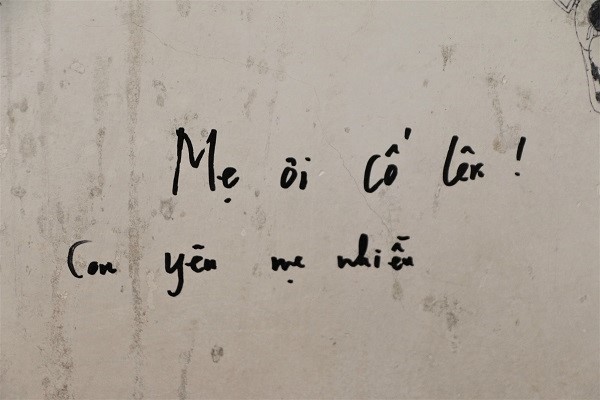 Mẹ ôi cố lên !
Con yêu mẹ nhiễu